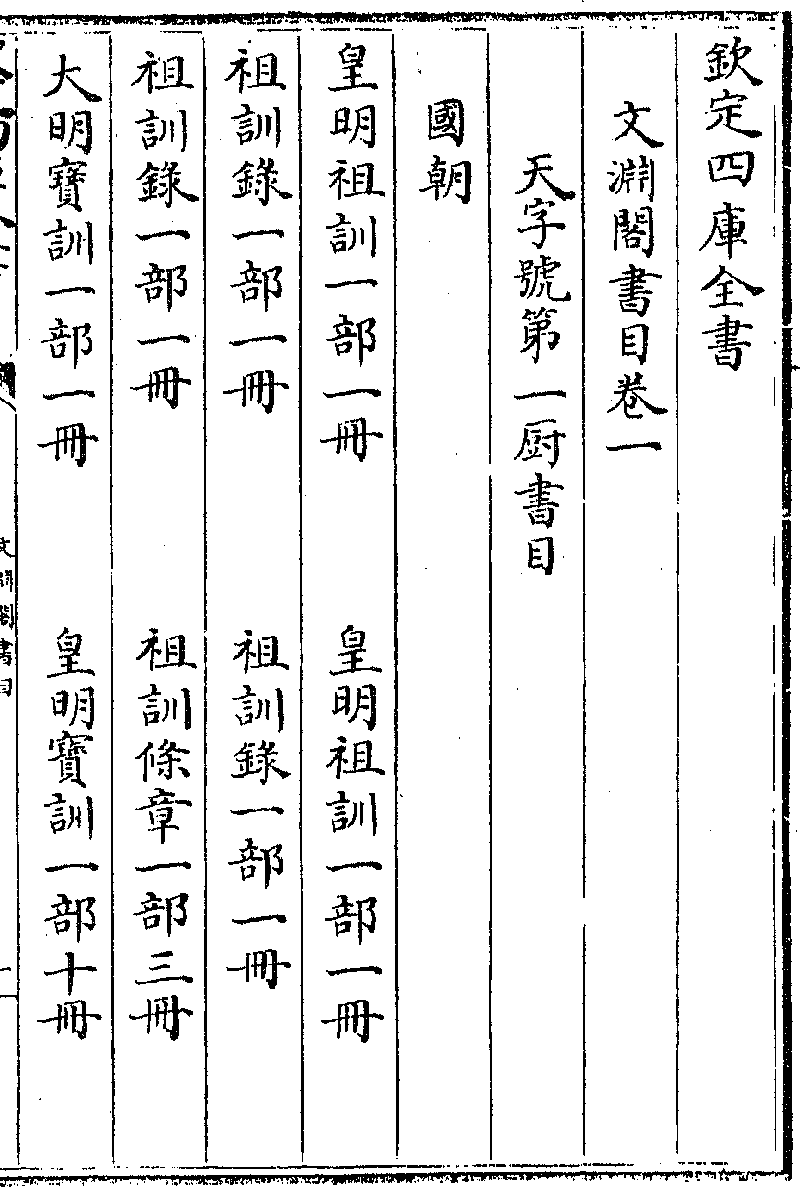 欽定四庫全書
文淵閣書目卷一
天字號第一厨書目
國朝
皇明祖訓一部一冊　皇明祖訓一部一冊
祖訓錄一部一冊　祖訓錄一部一冊
祖訓錄一部一冊　祖訓條章一部三冊
大明寶訓一部一冊　皇明寶訓一部十冊
文淵閣書目